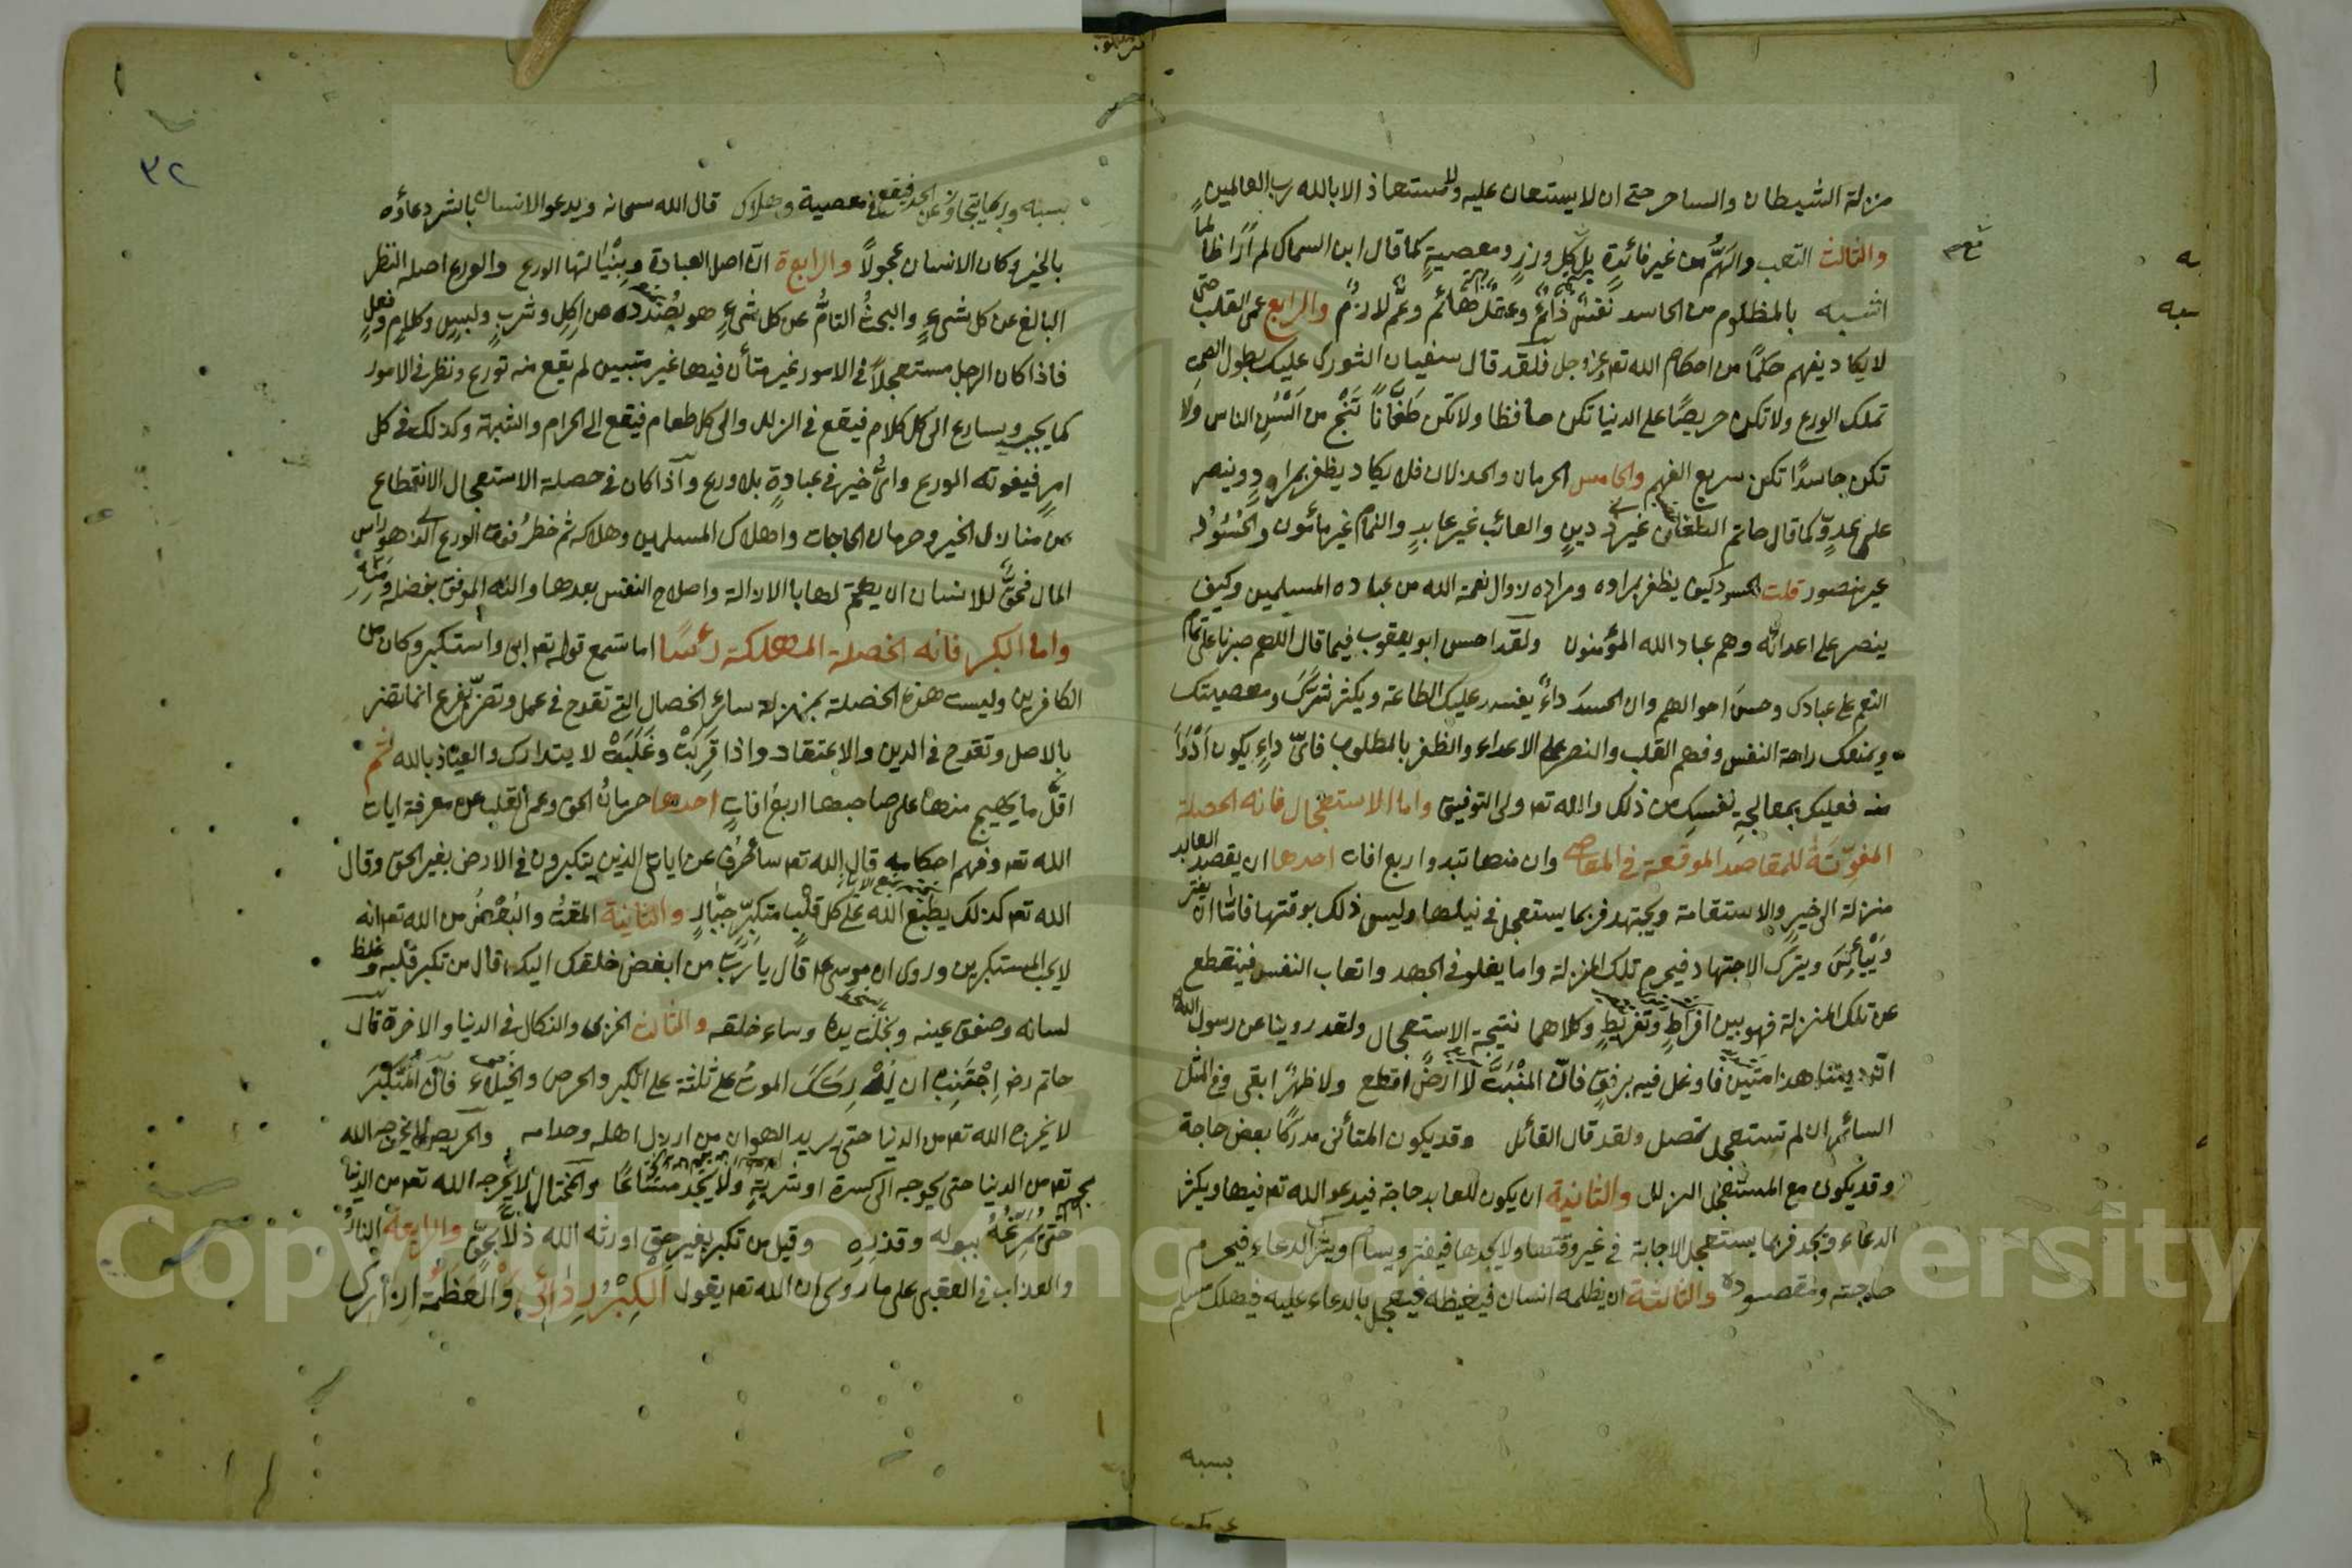 منزلة الشيطان والساحر حتى ان لا يستعان عليه ولا مستعاذ الا بالله رب العالمين
والثالث التعب والهم من غير فائدة بل كل وزر ومعصية كما قال ابن السماك لم ار ظالما
اشبه بالمظلوم من الحاسد نفس دائم وعقل هائم وغم لازم والرابع عمى القلب حتى
لا يكاد يفهم حكما من احكام الله تعـ عز وجل فلقد قال سفيان الثوري عليك بطول الصمت
تملك الورع ولا تكن حريصا على الدنيا تكن حافظا ولا تكن طعانا تنج من السن الناس ولا
تكن حاسدا تكن سريع الفهم والخامس الحرمان والخذلان فلا يكاد يظفر بمراد وينصر
على عدو كما قال حاتم الطعان غير ذي دين والعائب غير عابد والنمام غير مأمون والحسود
غير منصور قلت الحسود كيف يظفر بمراده ومراده زوال نعمة الله من عباده المسلمين وكيف
ينصر على اعدائه وهم عباد الله المؤمنون ولقد احسن ابو يعقوب فيما قال اللهم صبرنا على تمام
النعم على عبادك وحسن احوالهم وان الحسد داء يفسد عليك الطاعة ويكثر شرك ومعصيتك
ويمنعك راحة النفس وفهم القلب والنصر على الاعداء والظفر بالمطلوب فاي داء يكون ادوا
منه فعليك بمعالجة نفسك من ذلك والله تعـ ولي التوفيق واما الاستعجال فانه الخصلة
المفوتة للمقاصد الموقعة في المعاصي وان منها تبدو اربع افات احدها ان يقصد العابد
منزلة الى خير والاستقامة ويجتهد فربما يستعجل في نيلها وليس ذلك بوقتها فاما ان يفتر
وييأس ويترك الاجتهاد فيحرم تلك المنزلة واما يغلو في الجهد واتعاب النفس فينقطع
عن تلك المنزلة فهو بين افراط وتفريط وكلاهما نتيجة الاستعجال ولقد روينا عن رسول الله
ان ديننا هذا متين فاوغل فيه برفق فان المنبت لا ارضا اقطع ولا ظهرا ابقى وفي المثل
السائر ان لم تستعجل تصل ولقد قال القائل وقد يكون المتأني مدركا بعض حاجة
وقد يكون مع المستعجل الزلل والثانية ان يكون للعابد حاجة فيدعو الله تعـ فيها ويكثر
الدعاء ويجد فربما يستعجل الاجابة في غير وقتها ولا يجدها فيفتر ويسأم ويترك الدعاء فيحرم
حاجته ومقصوده والثالثة ان يظلمه انسان فيغيظه فيعجل بالدعاء عليه فيهلك مسلم
بسببه
٣٢
بسببه وربما يتجاوز عن الحد فيقع في معصية وهلاك قال الله سبحانه ويدعو الانسان بالشر دعاؤه
بالخير وكان الانسان عجولا والرابعة ان اصل العبادة وبنيانها الورع والورع اصله النظر
البالغ عن كل شيء والبحث التام عن كل شيء هو بصدده من اكل وشرب ولبس وكلام وفعل
فاذا كان الرجل مستعجلا في الامور غير متأن فيها غير متبين لم يقع منه تورع ونظر في الامور
كما يجب ويسارع الى كل كلام فيقع في الزلل والى كل طعام فيقع الى الحرام والشبهة وكذلك في كل
امر فيفوته الورع واي خير في عبادة بلا ورع واذا كان في خصلة الاستعجال الانقطاع
عن منازل الخير وحرمان الحاجات واهلاك المسلمين وهلاكه ثم خطر فوت الورع الذي هو راس
المال فحق للانسان ان يهتم لها بالازالة واصلاح النفس بعدها والله الموفق بفضله
واما الكبر فانه الخصلة المهلكة رأسا اما تسمع قوله تعـ ابى واستكبر وكان من
الكافرين وليست هذه الخصلة بمنزلة سائر الخصال التي تقدح في عمل وتضر بفرع انما تضر
بالاصل وتقدح في الدين والاعتقاد واذا قربت وغلبت لا يتدارك والعياذ بالله ثم
اقل ما يهيج منها على صاحبها اربع افات احدها حرمان الحق وعمى القلب عن معرفة ايات
الله تعـ وفهم احكامه قال الله تعـ ساصرف عن اياتي الذين يتكبرون في الارض بغير الحق وقال
الله تعـ كذلك يطبع الله على كل قلب متكبر جبار والثانية المقت والبغض من الله تعـ انه
لا يحب المستكبرين وروي ان موسى عـ قال يا رب من ابغض خلقك اليك قال من تكبر قلبه وغلظ
لسانه وصفق عينه وبخلت يده وساء خلقه والثالث الخزي والنكال في الدنيا والاخرة قال
حاتم رضـ اجتنب ان يدركك الموت على ثلثة على الكبر والحرص والخيلاء فان المتكبر
لا يخرجه الله تعـ من الدنيا حتى يريه الهوان من ارذل اهله وخدامه والحريص لا يخرجه الله
تعـ من الدنيا حتى يحوجه الى كسرة او شربة ولا يجد مساغا والمختال لا يخرجه الله تعـ من الدنيا
حتى يمرغه ببوله وقذره وقيل من تكبر بغير حق اورثه الله ذلا بحق والرابعة النار
والعذاب في العقبى على ما روي ان الله تعـ يقول الكبر ردائي والعظمة ازاري
Copyright © King Saud University